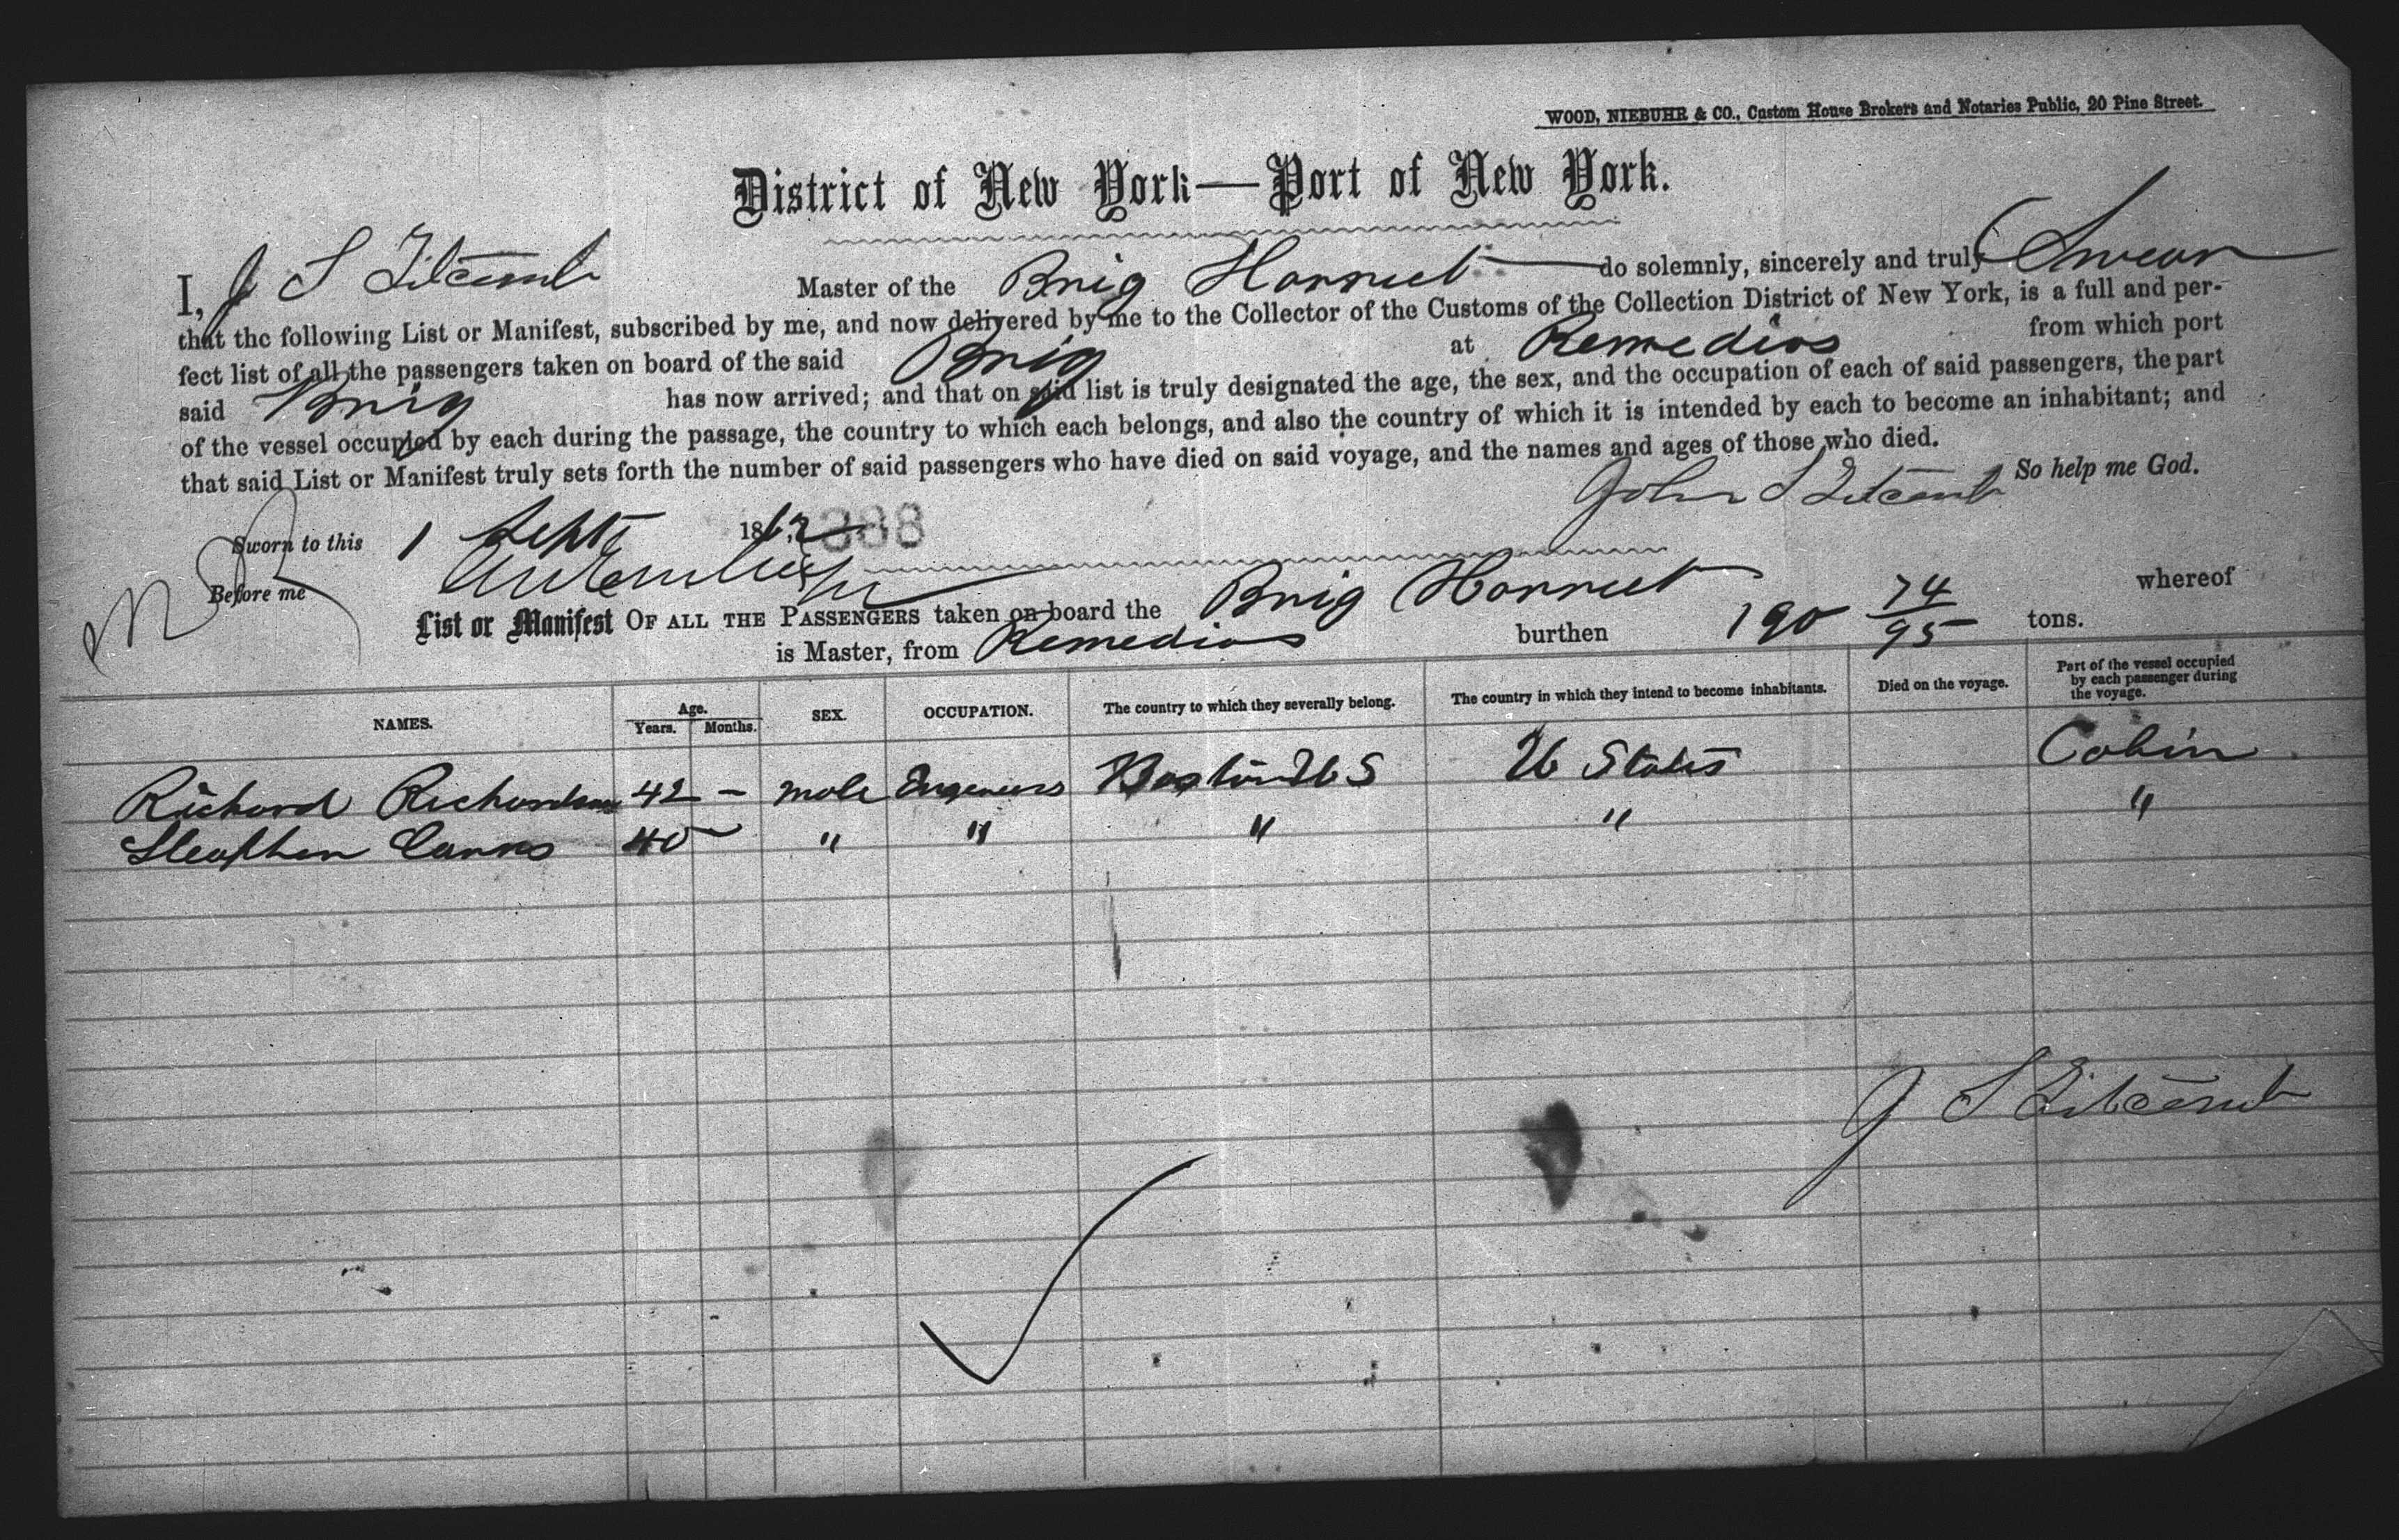 WOOD, NIEBUHR & CO., Custom House Brokers and Notaries Public, 20 Pine Street.
District of New York—Port of New York.
I, J S Titcomb Master of the Brig Harriet do solemnly, sincerely and truly Swear
that the following List or Manifest, subscribed by me, and now delivered by me to the Collector of the Customs of the Collection District of New York, is a full and per-
fect list of all the passengers taken on board of the said Brig at Remedios from which port
said Brig has now arrived; and that on said list is truly designated the age, the sex, and the occupation of each of said passengers, the part
of the vessel occupied by each during the passage, the country to which each belongs, and also the country of which it is intended by each to become an inhabitant; and
that said List or Manifest truly sets forth the number of said passengers who have died on said voyage, and the names and ages of those who died.
John S Titcomb So help me God.
Sworn to this 1 Sept 1862 888
Before me
List or Manifest OF ALL THE PASSENGERS taken on board the Brig Harriet whereof
is Master, from Remedios burthen 190 74/95 tons.
NAMES. Age. Years. Months. SEX. OCCUPATION. The country to which they severally belong. The country in which they intend to become inhabitants. Died on the voyage. Part of the vessel occupied by each passenger during the voyage.
Richard Richardson 42 – male Engineers Boston U S U States Cabin
Steaphen 40 – " " " " "
J S Titcomb